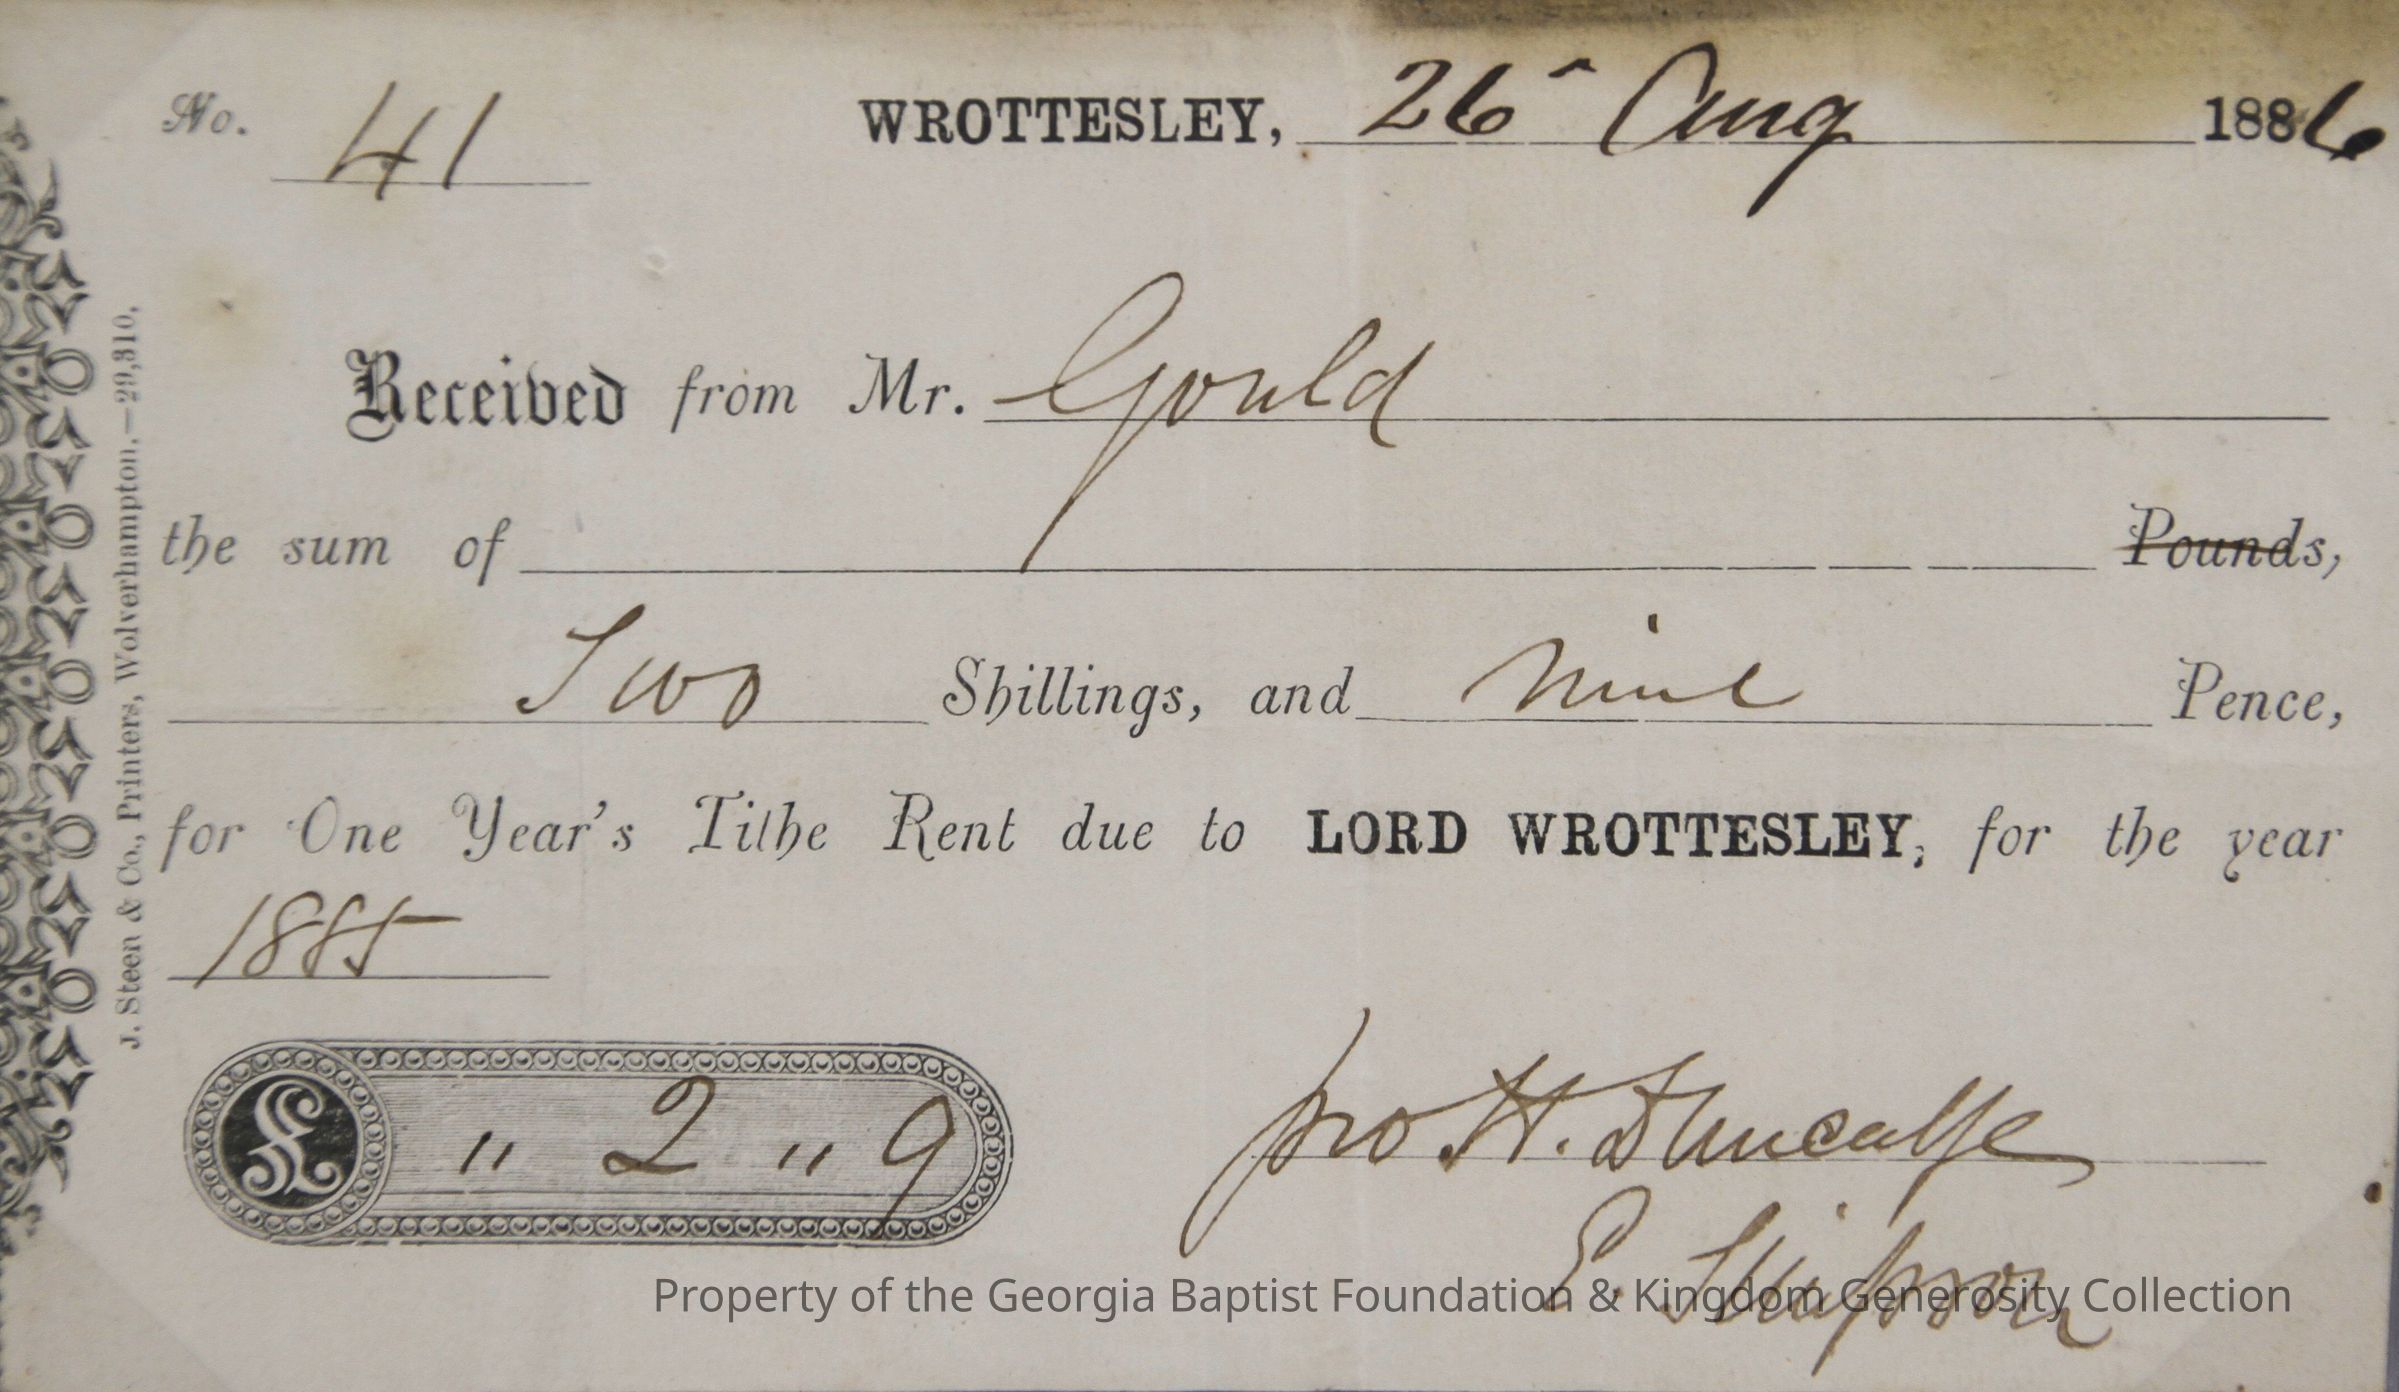 No. 41 WROTTESLEY, 26 Aug 1886
Received from Mr. Gould
the sum of Pounds,
Two Shillings, and Nine Pence,
for One Year's Tithe Rent due to LORD WROTTESLEY, for the year
1885
£ " 2 " 9
pro H. Duncalfe
E. Simpson
J. Steen & Co., Printers, Wolverhampton.—29,310,
Property of the Georgia Baptist Foundation & Kingdom Generosity Collection